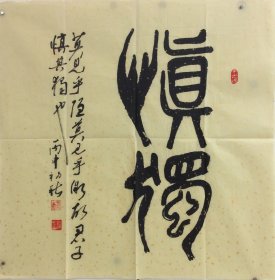 慎獨
莫見乎隱莫見乎微故君子
慎其獨也 丙申初秋